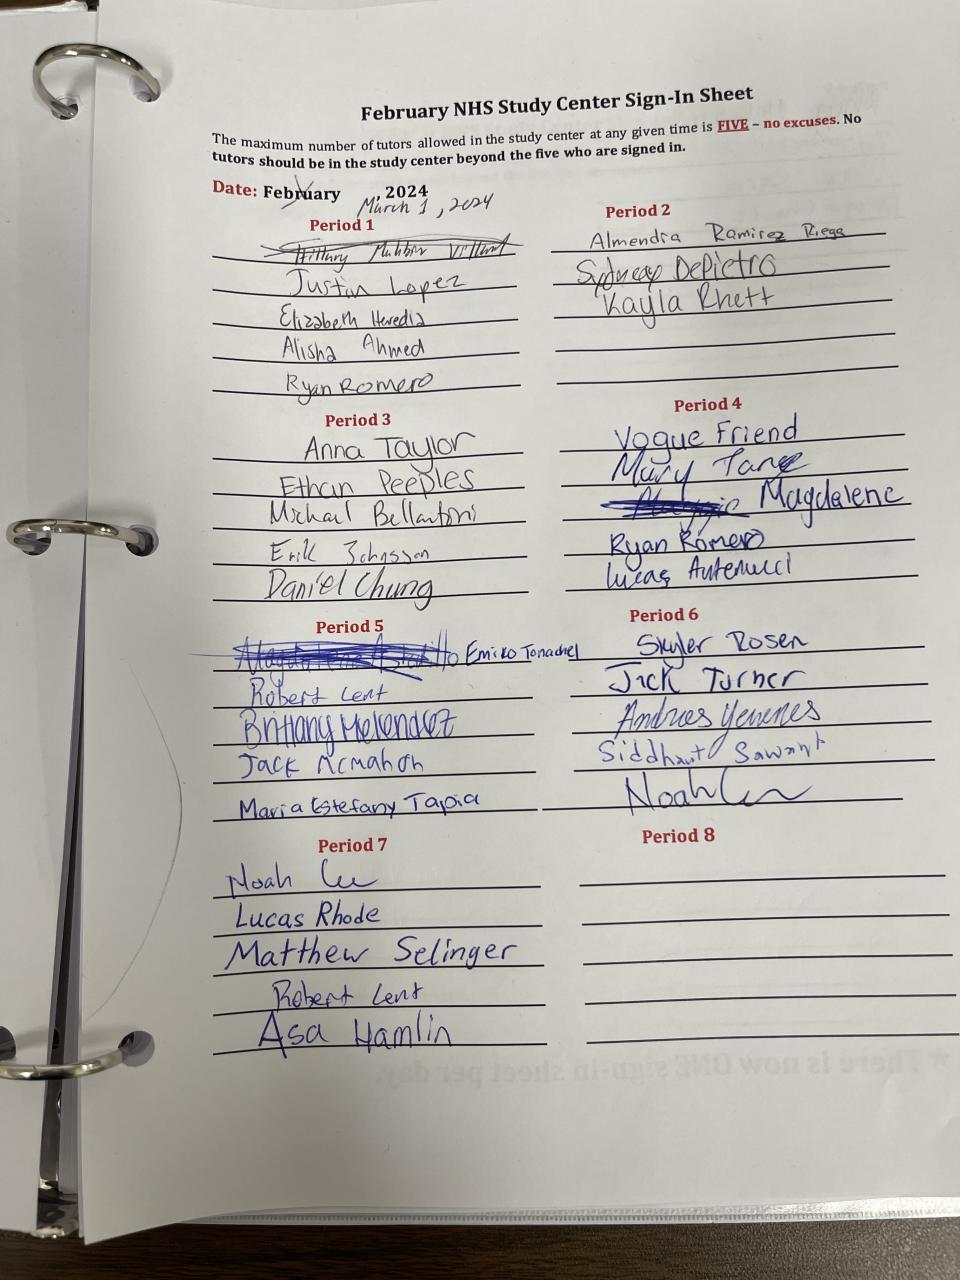 February NHS Study Center Sign-In Sheet
The maximum number of tutors allowed in the study center at any given time is FIVE – no excuses. No
tutors should be in the study center beyond the five who are signed in.
Date: February , 2024
March 1, 2024
Period 1
Hillary
Justin Lopez
Elizabeth Heredia
Alisha Ahmed
Ryan Romero
Period 2
Almendra Ramirez Riega
Sydney DePietro
Kayla Rhett
Period 3
Anna Taylor
Ethan Peeples
Michael Bellantoni
Erik Johnsson
Daniel Chung
Period 4
Vogue Friend
Mary Tang
Magdalene
Ryan Romero
Lucas Antenucci
Period 5
Emiko Tonachel
Robert Lent
Brittany Melendez
Jack McMahon
Maria Estefany Tapia
Period 6
Skyler Rosen
Jack Turner
Andres Yevenes
Siddhant Sawant
Noah
Period 7
Noah
Lucas Rhode
Matthew Selinger
Robert Lent
Asa Hamlin
Period 8
There is now ONE sign-in sheet per day.